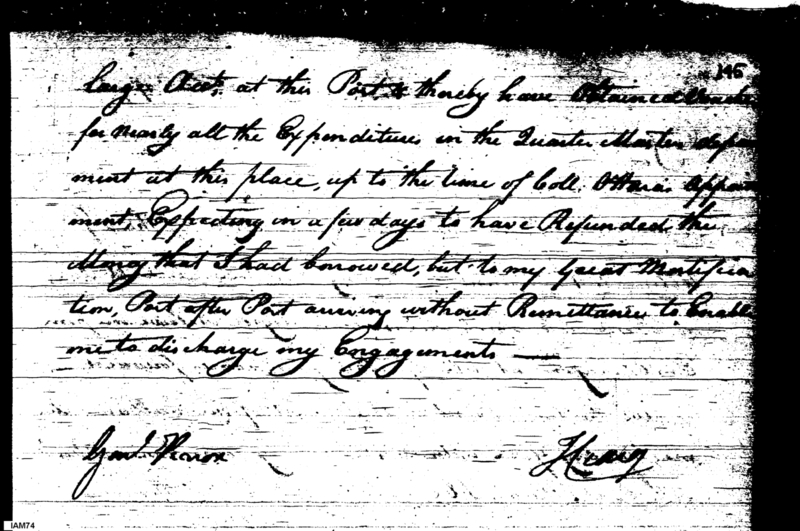 146
large Accts. at this Post & thereby have Obtained Vouche
for nearly all the Expenditures in the Quarter Master depar
ment at this place, up to the time of Coll. O'Hara's Appoin
ment, Expecting in a few days to have Refunded the
Money that I had borrowed, but to my Great Mortifica
tion, Post after Post arriving without Remittances to Enable
me to discharge my Engagements —
Genl. Knox
I Craig
IAM74